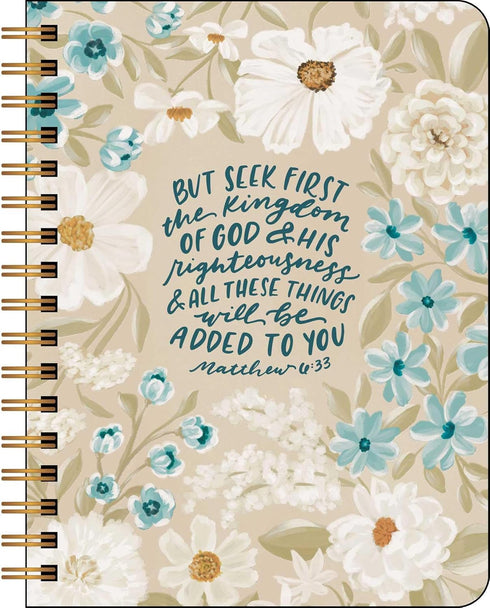 BUT SEEK FIRST
the Kingdom
OF GOD & HIS
righteousness
& ALL THESE THINGS
will be
ADDED TO YOU
Matthew 6:33